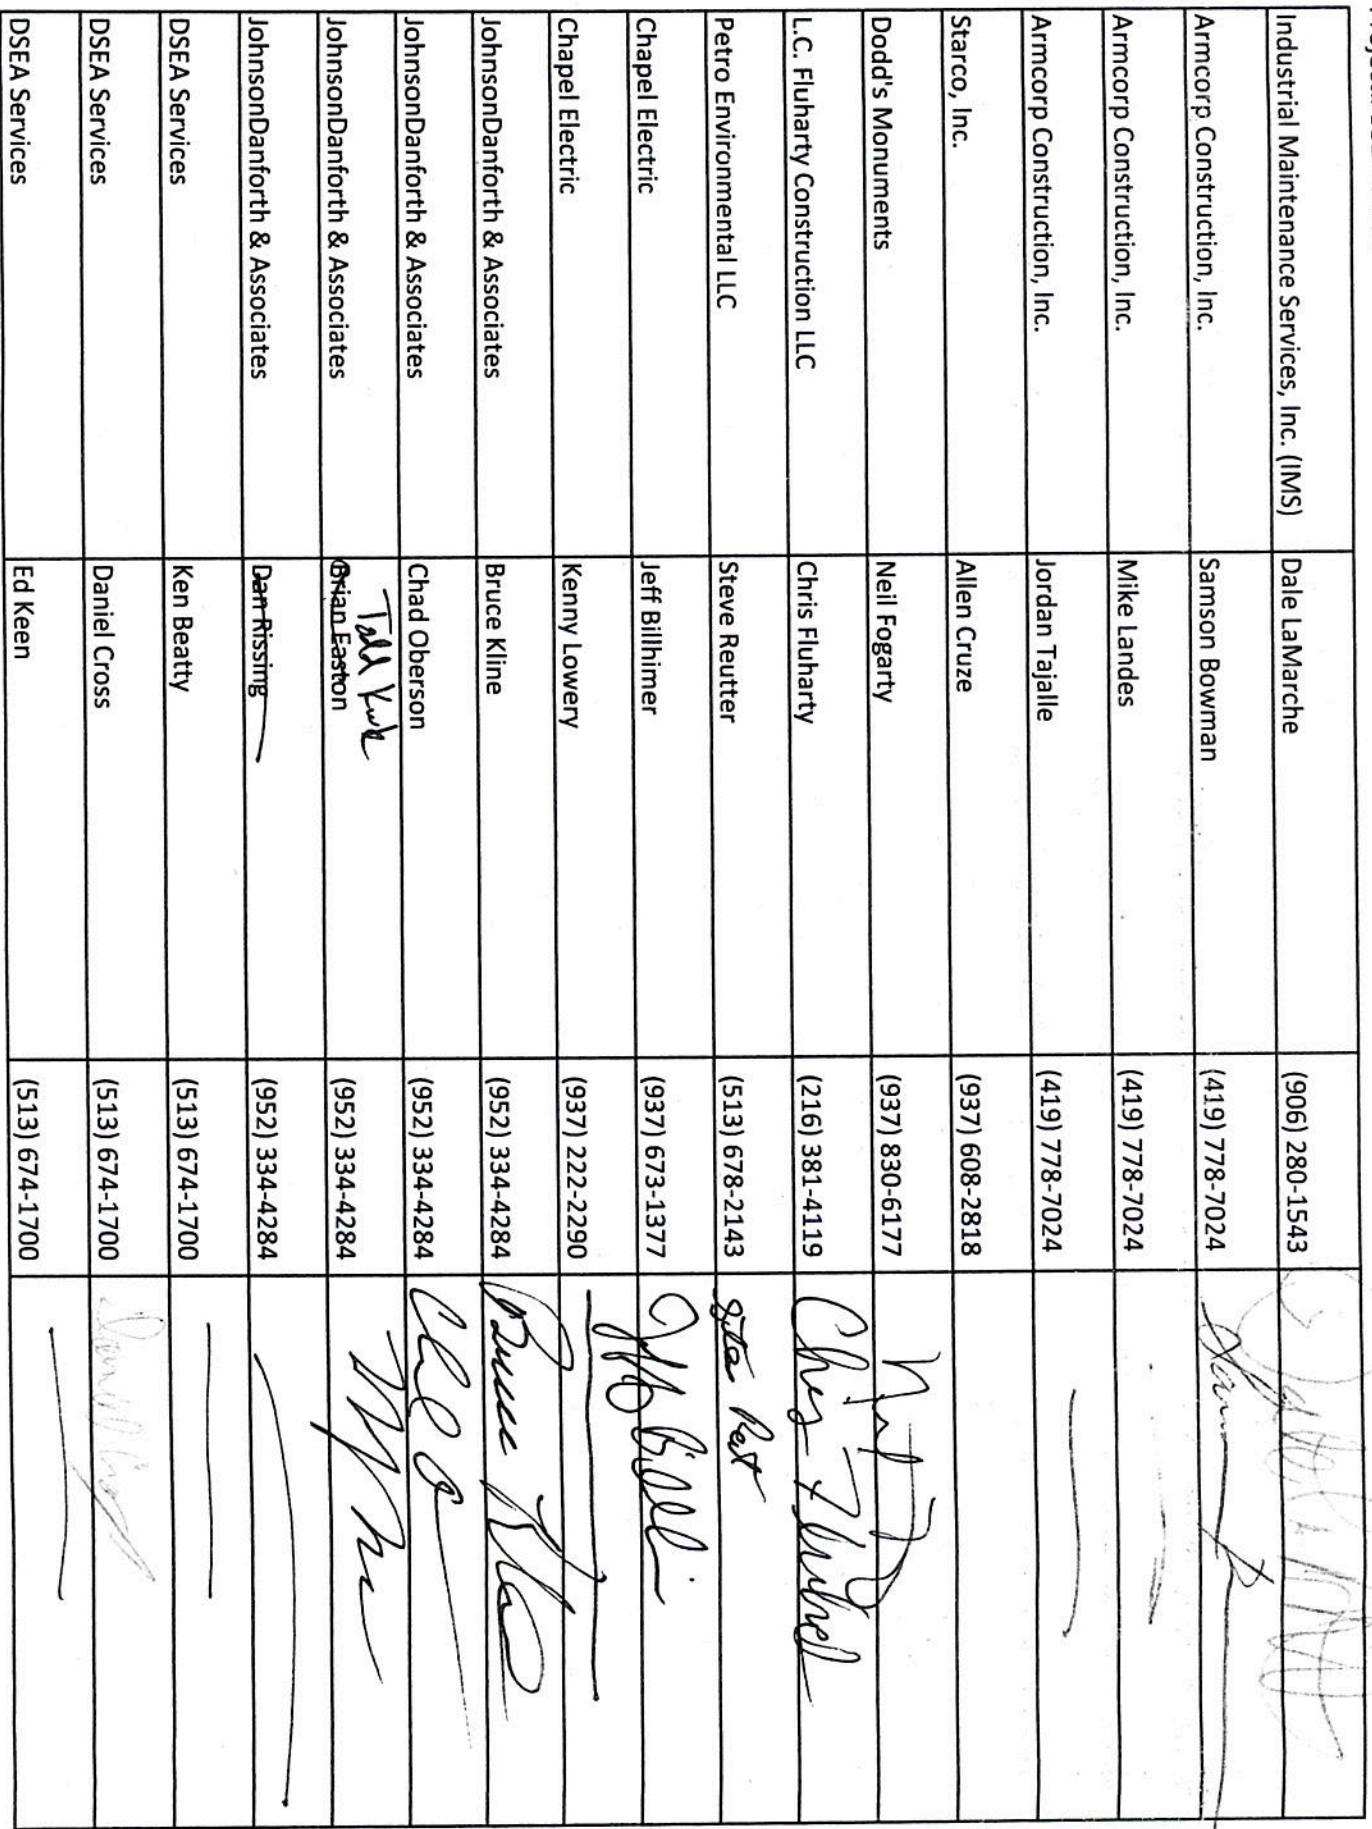 Industrial Maintenance Services, Inc. (IMS) Dale LaMarche (906) 280-1543
Armcorp Construction, Inc. Samson Bowman (419) 778-7024
Armcorp Construction, Inc. Mike Landes (419) 778-7024
Armcorp Construction, Inc. Jordan Tajalle (419) 778-7024
Starco, Inc. Allen Cruze (937) 608-2818
Dodd's Monuments Neil Fogarty (937) 830-6177
L.C. Fluharty Construction LLC Chris Fluharty (216) 381-4119
Petro Environmental LLC Steve Reutter (513) 678-2143
Chapel Electric Jeff Billhimer (937) 673-1377
Chapel Electric Kenny Lowery (937) 222-2290
JohnsonDanforth & Associates Bruce Kline (952) 334-4284
JohnsonDanforth & Associates Chad Oberson (952) 334-4284
JohnsonDanforth & Associates Brian Easton (952) 334-4284
JohnsonDanforth & Associates Dan Rissing (952) 334-4284
DSEA Services Ken Beatty (513) 674-1700
DSEA Services Daniel Cross (513) 674-1700
DSEA Services Ed Keen (513) 674-1700